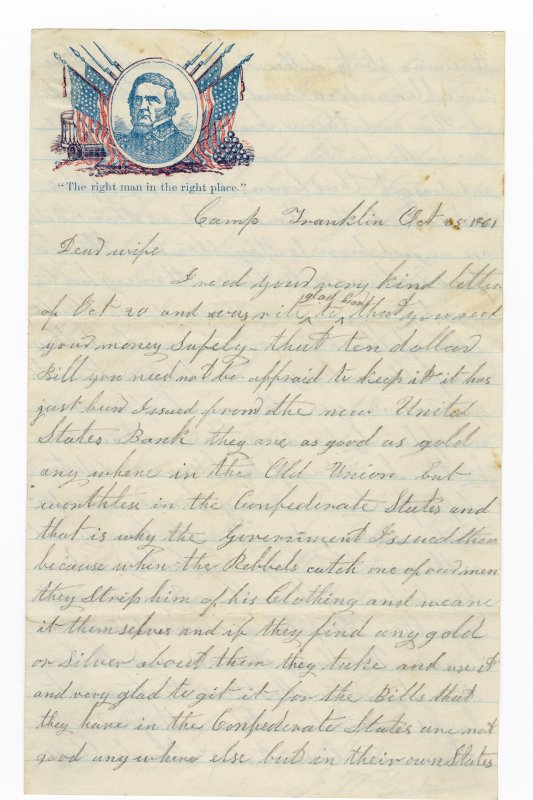 "The right man in the right place."
Camp Franklin Oct 25 1861
Dear wife
I recd your very kind letter
of Oct 20 and was rile glad to hear that you recd
your money Safely. that ten dollar
Bill you need not be affraid to keep it it has
just been Issued from the new United
States Bank they are as good as gold
any where in the Old Union but
worthless in the Confederate States and
that is why the Government Issued them
because when the Rebbels catch one of our men
they Strip him of his Clothing and weare
it themselves and if they find any gold
or Silver about them they take and use it
and very glad to git it for the Bills that
they have in the Confederate States are not
good any where else but in their own States